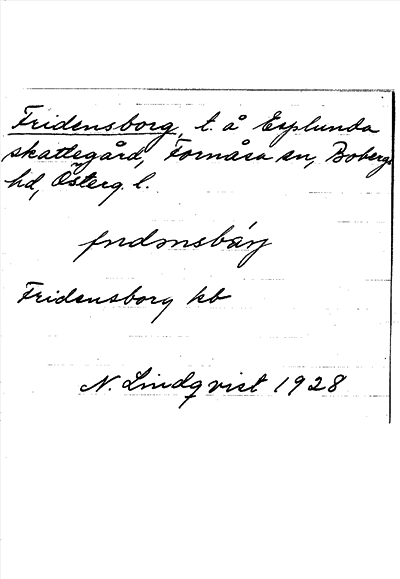 Fridensborg, t. å Esplunda
skattegård, Fornåsa sn, Bobergs
hd, Österg. l.
Fridensborg kb
N. Lindqvist 1928